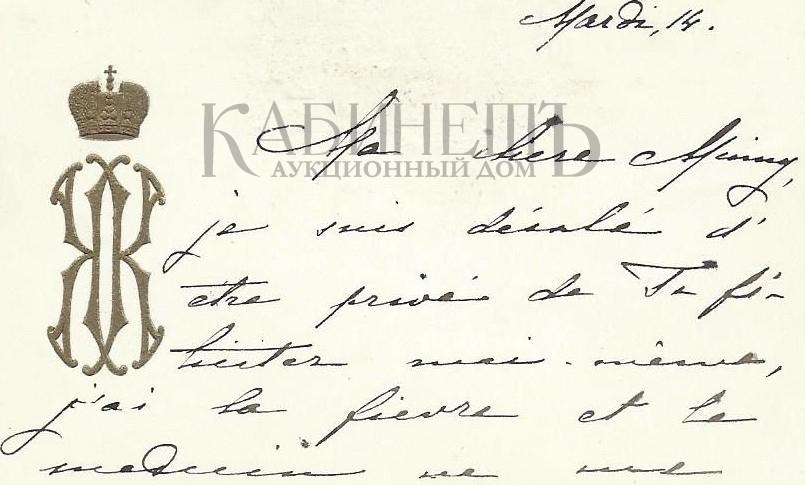 Mardi, 14.
КАБИНЕТЪ
АУКЦИОННЫЙ ДОМ
Ma chere Minny,
je suis désolé d'
être privé de Te fé-
liciter moi-même,
j'ai la fievre et le
medecin ne me